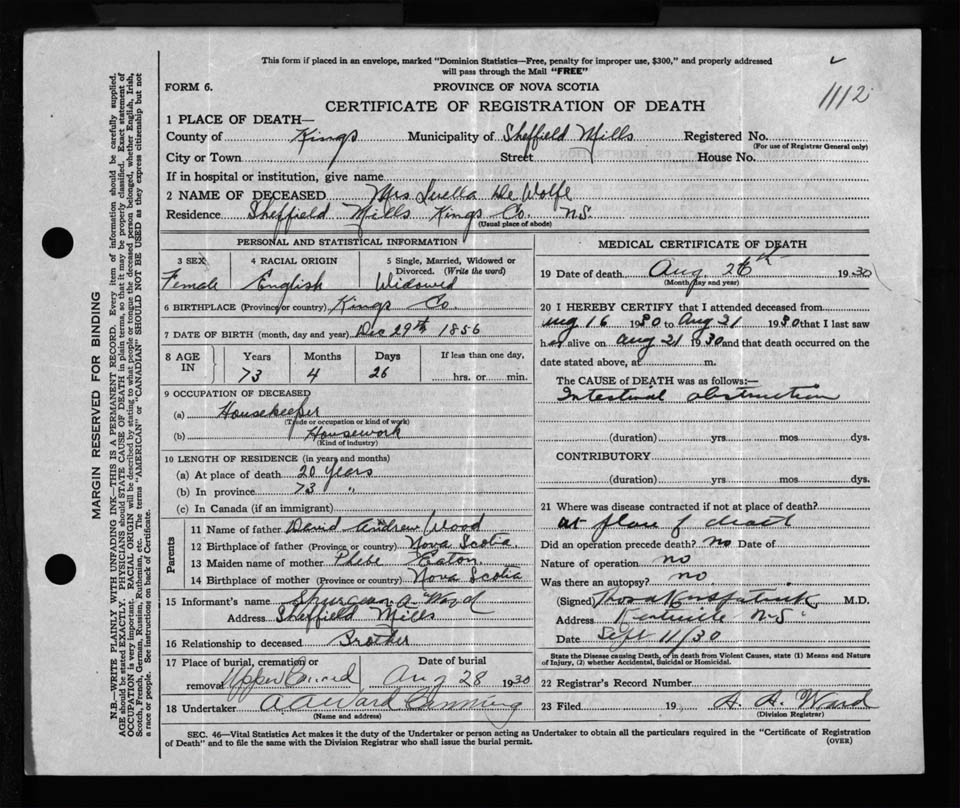 This form if placed in an envelope, marked "Dominion Statistics—Free, penalty for improper use, $300," and properly addressed
will pass through the Mail "FREE"
FORM 6.
PROVINCE OF NOVA SCOTIA
1112
CERTIFICATE OF REGISTRATION OF DEATH
1 PLACE OF DEATH—
County of Kings Municipality of Sheffield Mills Registered No.
(For use of Registrar General only)
City or Town Street House No.
If in hospital or institution, give name
2 NAME OF DECEASED Mrs Luella De Wolfe
Residence Sheffield Mills Kings Co. N.S.
(Usual place of abode)
PERSONAL AND STATISTICAL INFORMATION
3 SEX 4 RACIAL ORIGIN 5 Single, Married, Widowed or
Divorced. (Write the word)
Female English Widowed
6 BIRTHPLACE (Province or country) Kings Co.
7 DATE OF BIRTH (month, day and year) Dec 29th 1856
8 AGE IN Years Months Days If less than one day,
73 4 26 hrs. or min.
9 OCCUPATION OF DECEASED
(a) Housekeeper
(Trade or occupation or kind of work)
(b) Housework
(Kind of industry)
10 LENGTH OF RESIDENCE (in years and months)
(a) At place of death 20 years
(b) In province 73 "
(c) In Canada (if an immigrant)
Parents
11 Name of father David Andrew Wood
12 Birthplace of father (Province or country) Nova Scotia
13 Maiden name of mother Phebe Eaton
14 Birthplace of mother (Province or country) Nova Scotia
15 Informant's name A.
Address Sheffield Mills
16 Relationship to deceased Brother
17 Place of burial, cremation or Date of burial
removal Upper Aug 28 1930
18 Undertaker A A Ward Canning
(Name and address)
MEDICAL CERTIFICATE OF DEATH
19 Date of death Aug 26th 1930
(Month, day and year)
20 I HEREBY CERTIFY that I attended deceased from
Aug 16 1930 to Aug 21 1930 that I last saw
her alive on Aug 21 1930 and that death occurred on the
date stated above, at m.
The CAUSE of DEATH was as follows:—
Intestinal obstruction
(duration) yrs mos dys.
CONTRIBUTORY
(duration) yrs mos dys.
21 Where was disease contracted if not at place of death?
at place of death
Did an operation precede death? no Date of
Nature of operation no
Was there an autopsy? no
(Signed) M.D.
Address Kentville N.S.
Date Sept 11/30
State the Disease causing Death, or in death from Violent Causes, state (1) Means and Nature
of Injury, (2) whether Accidental, Suicidal or Homicidal.
22 Registrar's Record Number
23 Filed 19 A. A. Ward
(Division Registrar)
SEC. 46—Vital Statistics Act makes it the duty of the Undertaker or person acting as Undertaker to obtain all the particulars required in the "Certificate of Registration
of Death" and to file the same with the Division Registrar who shall issue the burial permit. (OVER)
MARGIN RESERVED FOR BINDING
N.B.—WRITE PLAINLY WITH UNFADING INK—THIS IS A PERMANENT RECORD. Every item of information should be carefully supplied.
AGE should be stated EXACTLY. PHYSICIANS should STATE CAUSE OF DEATH in plain terms, so that it may be properly classified. Exact statement of
OCCUPATION is very important. RACIAL ORIGIN will be described by stating to what people or tongue the deceased person belonged, whether English, Irish,
Scotch, French, German, Russian, Ruthenian, etc. The terms "AMERICAN" or "CANADIAN" SHOULD NOT BE USED as they express citizenship but not
a race or people. See instructions on back of Certificate.